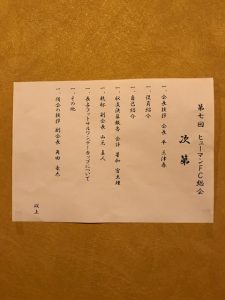 第七回 ヒューマンFC総会
次第
一、会長挨拶 会長 平 三津春
一、役員紹介
一、自己紹介
一、収支決算報告 会計
一、乾杯 副会長 山元 直人
一、長与フットサルワンデーカップについて
一、その他
一、閉会の挨拶 副会長
以上